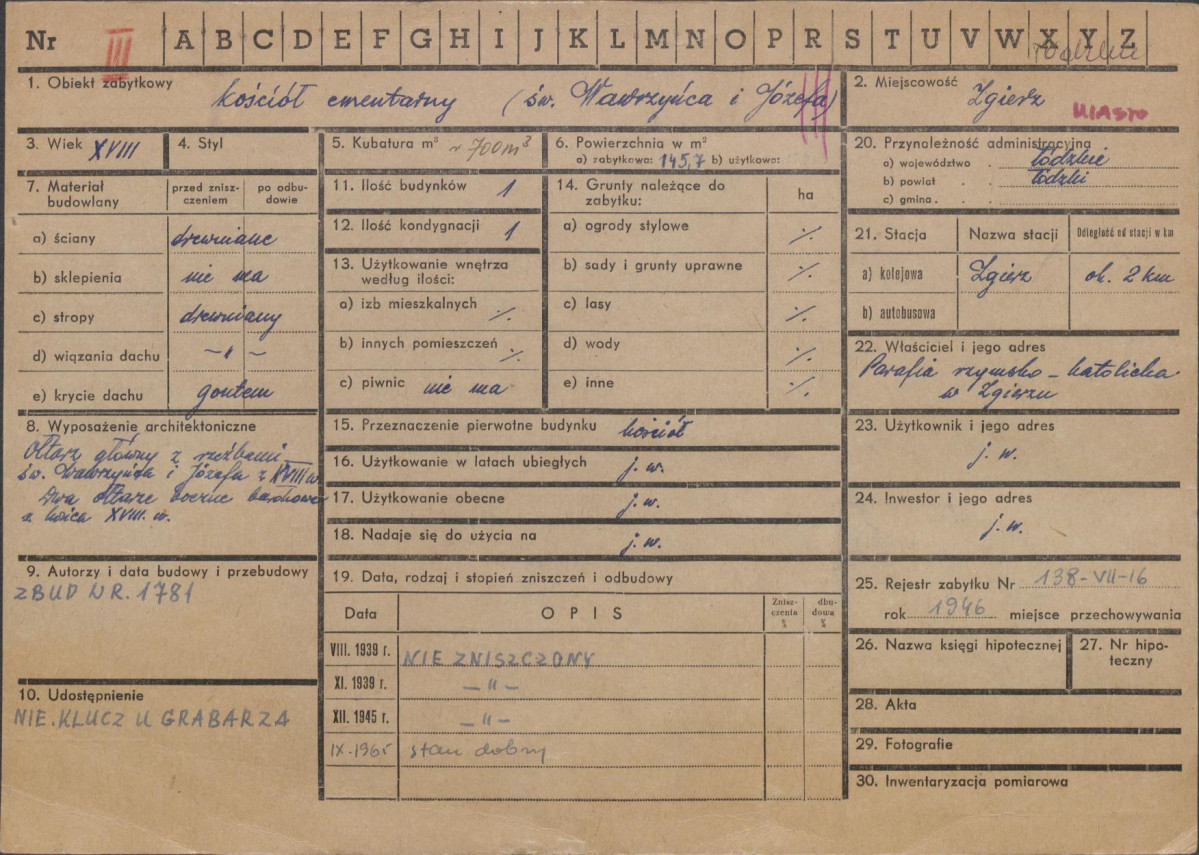 Nr III A B C D E F G H I J K L M N O P R S T U V W X Y Z
1. Obiekt zabytkowy kościół cmentarny (św. Wawrzyńca i Józefa)
2. Miejscowość Zgierz
MIASTO
3. Wiek XVIII
4. Styl
5. Kubatura m³ ~ 700 m³
6. Powierzchnia w m²
a) zabytkowa: 145,7 b) użytkowa:
7. Materiał budowlany
przed zniszczeniem
po odbudowie
a) ściany drewniane
b) sklepienia nie ma
c) stropy drewniany
d) wiązania dachu — " —
e) krycie dachu gontem
8. Wyposażenie architektoniczne
Ołtarz główny z rzeźbami
św. Wawrzyńca i Józefa z XVIII w.
Dwa ołtarze boczne barokowe
z końca XVIII. w.
9. Autorzy i data budowy i przebudowy
ZBUD W R. 1781
10. Udostępnienie
NIE. KLUCZ U GRABARZA
11. Ilość budynków 1
12. Ilość kondygnacji 1
13. Użytkowanie wnętrza
według ilości:
a) izb mieszkalnych ·/.
b) innych pomieszczeń ·/.
c) piwnic nie ma
14. Grunty należące do
zabytku:
ha
a) ogrody stylowe ·/.
b) sady i grunty uprawne ·/.
c) lasy ·/.
d) wody ·/.
e) inne ·/.
15. Przeznaczenie pierwotne budynku kościół
16. Użytkowanie w latach ubiegłych j. w.
17. Użytkowanie obecne j. w.
18. Nadaje się do użycia na j. w.
19. Data, rodzaj i stopień zniszczeń i odbudowy
Data OPIS Znisz-czenia % dbu-dowa %
VIII. 1939 r. NIE ZNISZCZONY
XI. 1939 r. — " —
XII. 1945 r. — " —
IX-1965 stan dobry
20. Przynależność administracyjna
a) województwo . łódzkie
b) powiat . . łódzki
c) gmina . .
21. Stacja Nazwa stacji Odległość od stacji w km
a) kolejowa Zgierz ok. 2 km
b) autobusowa
22. Właściciel i jego adres
Parafia rzymsko-katolicka
w Zgierzu
23. Użytkownik i jego adres
j. w.
24. Inwestor i jego adres
j. w.
25. Rejestr zabytku Nr 138-VII-16
rok 1946 miejsce przechowywania
26. Nazwa księgi hipotecznej
27. Nr hipo-
teczny
28. Akta
29. Fotografie
30. Inwentaryzacja pomiarowa